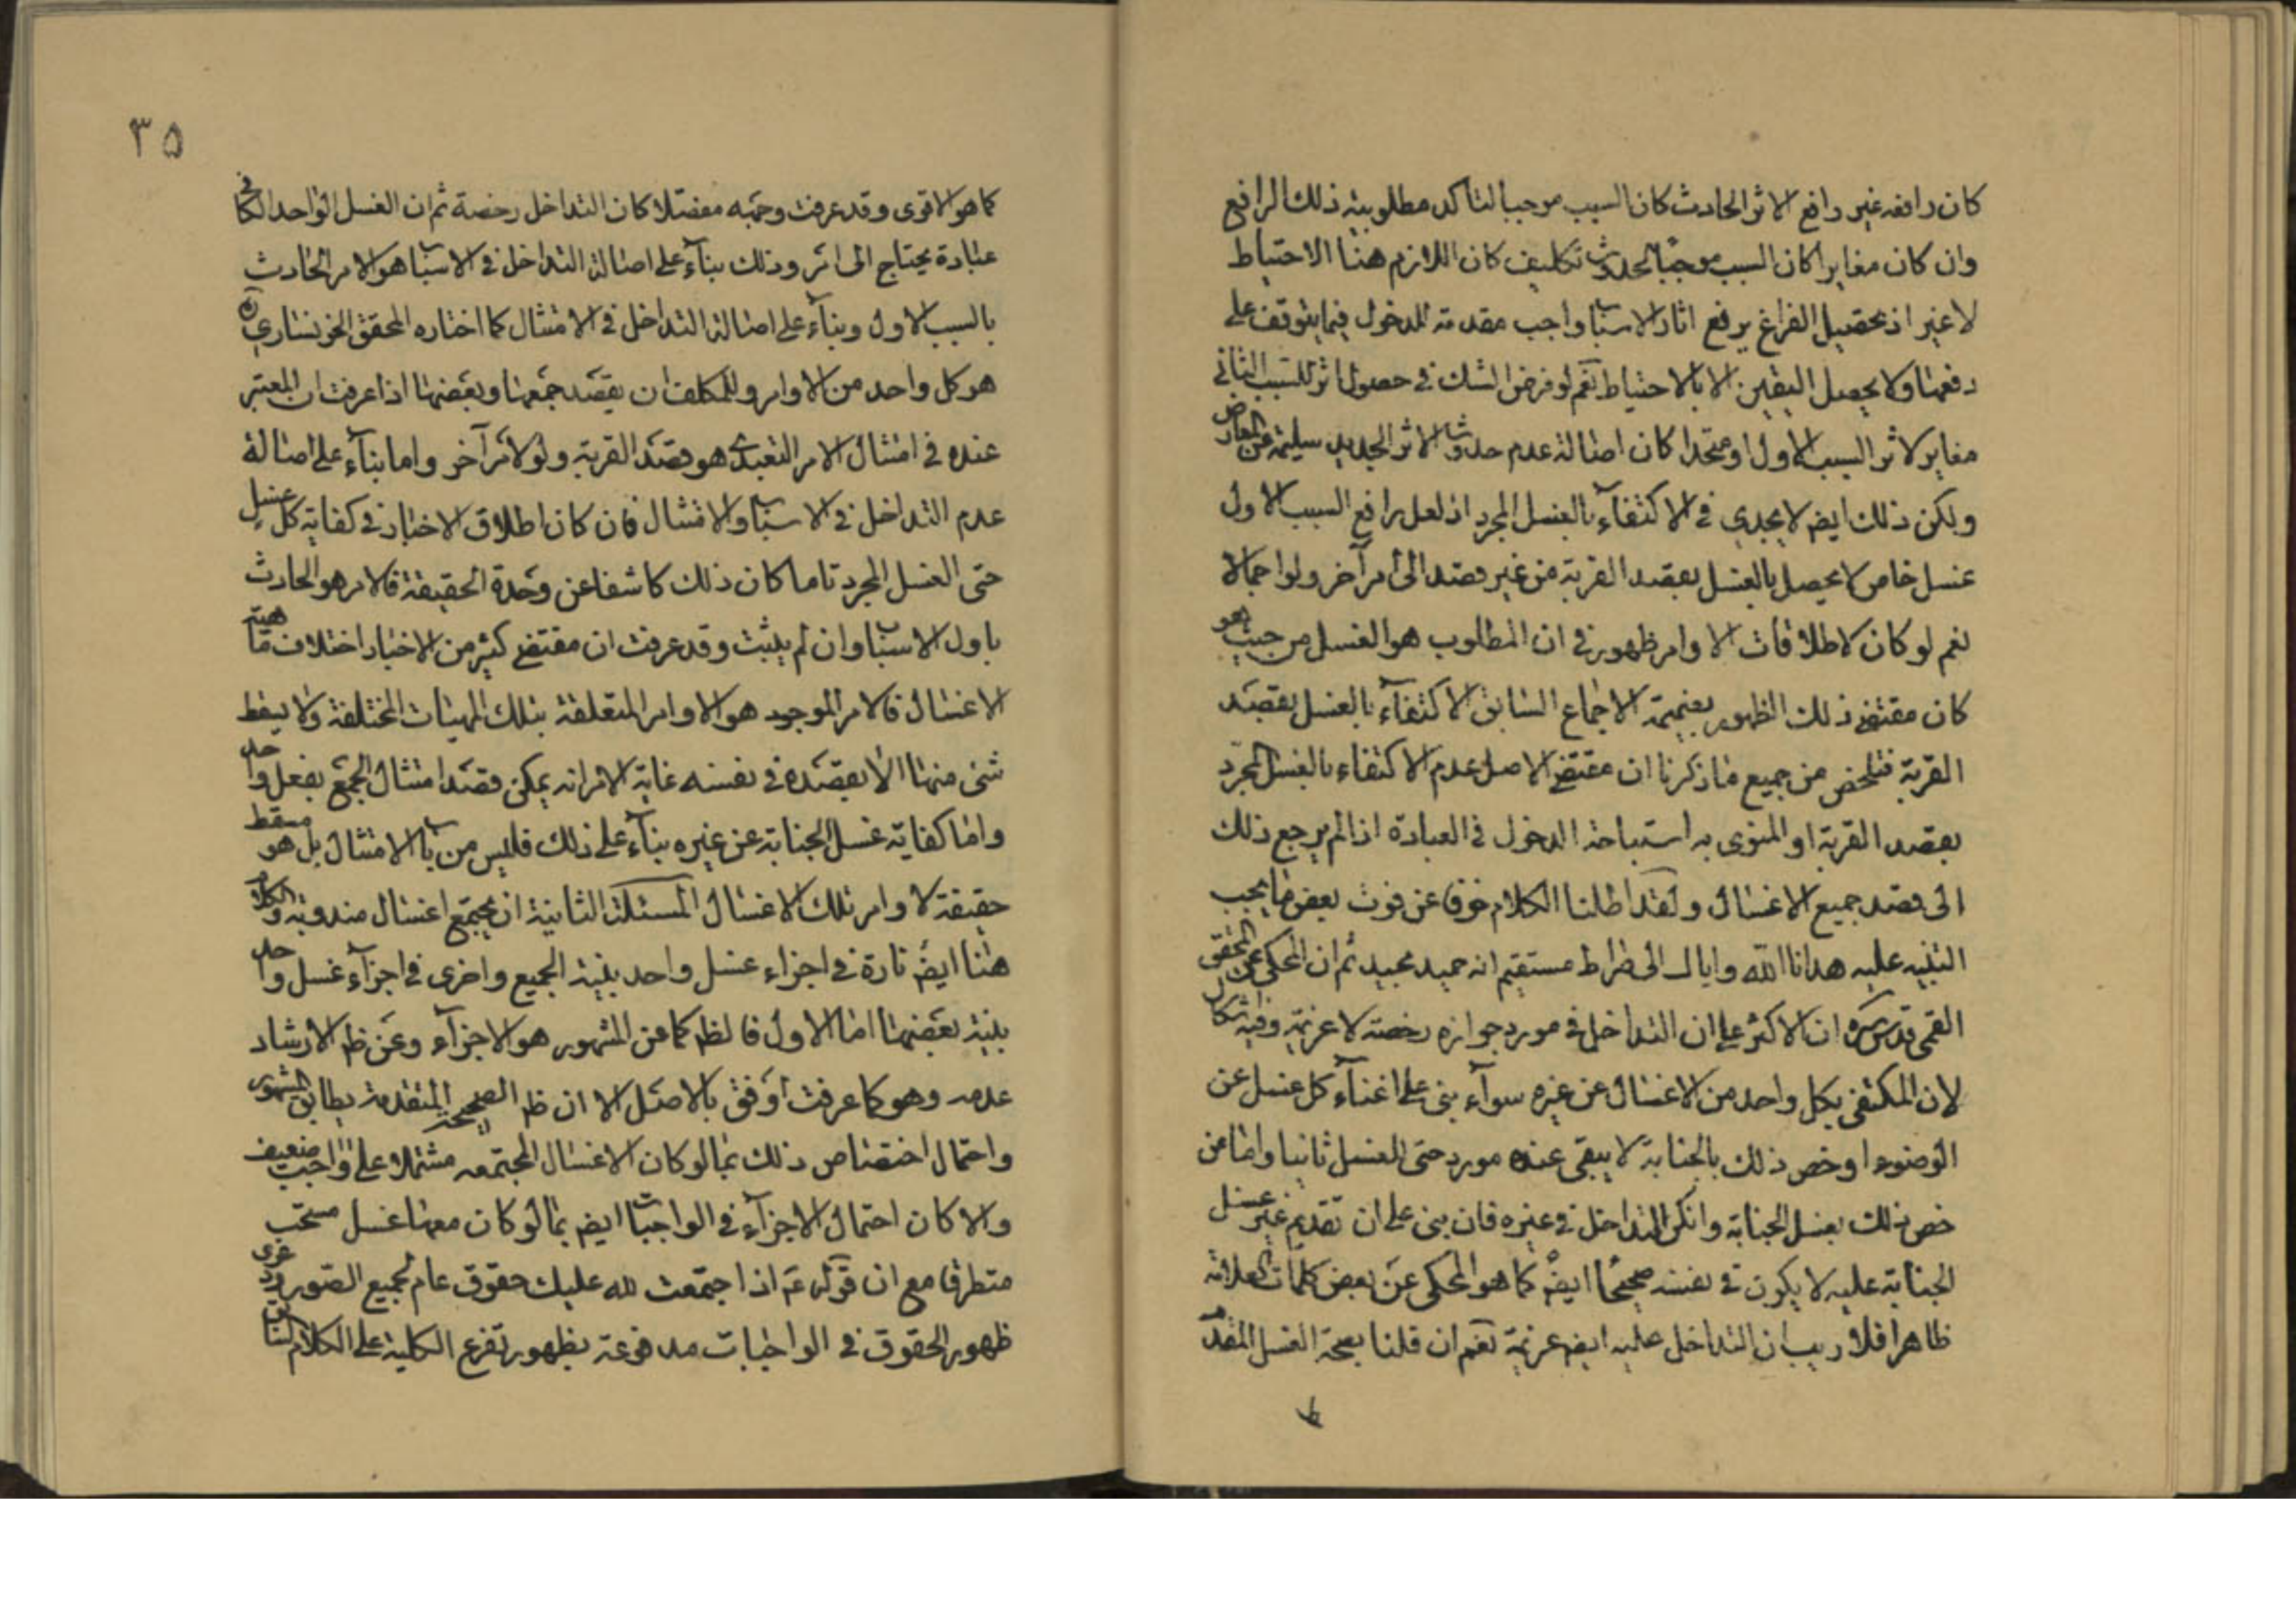 كان رافعه غير رافع الاثر الحادث كان السبب موجبا لتاكد مطلوبية ذلك الرافع
وان كان مغايرا كان السبب موجبا لحدوث تكليف كان اللازم هنا الاحتياط
لا غير اذ تحصيل الفراغ برفع اثار الاسباب واجب مقدمة للدخول فيما يتوقف على
رفعها ولا يحصل اليقين الا بالاحتياط نعم لو فرض الشك في حصول اثر للسبب الثاني
مغاير لاثر السبب الاول او متحدا كان اصالة عدم حدوث الاثر الجديد سليمة عن المعارض
ولكن ذلك ايضم لا يجدي في الاكتفاء بالغسل المجرد اذ لعل رافع السبب الاول
غسل خاص لا يحصل بالغسل بقصد القربة من غير قصد الى امر آخر ولو اجمالا
نعم لو كان لاطلاقات الاوامر ظهور في ان المطلوب هو الغسل من حيث هو
كان مقتضى ذلك الظهور بضميمة الاجماع السابق الاكتفاء بالغسل بقصد
القربة فتلخص من جميع ما ذكرنا ان مقتضى الاصل عدم الاكتفاء بالغسل المجرد
بقصد القربة او المنوى به استباحة الدخول في العبادة اذا لم يرجع ذلك
الى قصد جميع الاغسال ولقد اطلنا الكلام خوفا عن فوت بعض ما يجب
التنبيه عليه هدانا الله واياك الى صراط مستقيم انه حميد مجيد ثم ان المحكى عن المحقق
القمى قدس سره ان الاكثر على ان التداخل في مورد جوازه رخصة لا عزيمة وفيه اشكال
لان المكتفى بكل واحد من الاغسال عن غيره سواء بنى على اغناء كل غسل عن
الوضوء او خص ذلك بالجنابة لا يبقى عنده مورد حتى للغسل ثانيا واما من
خص ذلك بغسل الجنابة وانكر التداخل في غيره فان بنى على ان تقديم غير غسل
الجنابة عليه لا يكون في نفسه صحيحا ايضم كما هو المحكى عن بعض كلمات العلامة
ظاهرا فلا ريب ان التداخل عليه ايضم عزيمة نعم ان قلنا بصحة الغسل المقدم
ط
٣٥
كما هو الاقوى وقد عرفت وجهه مفصلا كان التداخل رخصة ثم ان الغسل الواحد الكافي
عبادة يحتاج الى امر وذلك بناء على اصالة التداخل في الاسباب هو الامر الحادث
بالسبب الاول وبناء على اصالة التداخل في الامتثال كما اختاره المحقق الخونساري
هو كل واحد من الاوامر وللمكلف ان يقصد جمعها وبعضها اذا عرفت ان المعتبر
عنده في امتثال الامر التعبدى هو قصد القربة ولو لامر آخر واما بناء على اصالة
عدم التداخل في الاسباب والامتثال فان كان اطلاق الاخبار في كفاية كل غسل
حتى الغسل المجرد تاما كان ذلك كاشفا عن وحدة الحقيقة فالامر هو الحادث
باول الاسباب وان لم يثبت وقد عرفت ان مقتضى كثير من الاخبار اختلاف مهية
الاغسال فالامر الموجود هو الاوامر المتعلقة بتلك المهيات المختلفة ولا يسقط
شئ منها الا بقصده في نفسه غاية الامر انه يمكن قصد امتثال الجمع بفعل واحد
واما كفاية غسل الجنابة عن غيره بناء على ذلك فليس من باب الامتثال بل هو مسقط
حقيقة لاوامر تلك الاغسال المسئلة الثانية ان يجتمع اغسال مندوبة والكلام
هنا ايضم تارة في اجزاء غسل واحد بنية الجميع واخرى في اجزاء غسل واحد
بنية بعضها اما الاول فالظم كما عن المشهور هو الاجزاء وعن ظم الارشاد
عدمه وهو كما عرفت اوفق بالاصل الا ان ظم الصحيحة المتقدمة يطابق المشهور
واحتمال اختصاص ذلك بما لو كان الاغسال المجتمعه مشتملا على الواجب ضعيف
والا كان احتمال الاجزاء في الواجبات ايضم بما لو كان معها غسل مستحب
متطرقا مع ان قوله عم اذا اجتمعت لله عليك حقوق عام لجميع الصور ودعوى
ظهور الحقوق في الواجبات مدفوعة بظهور تفرع الكلية على الكلام السابق